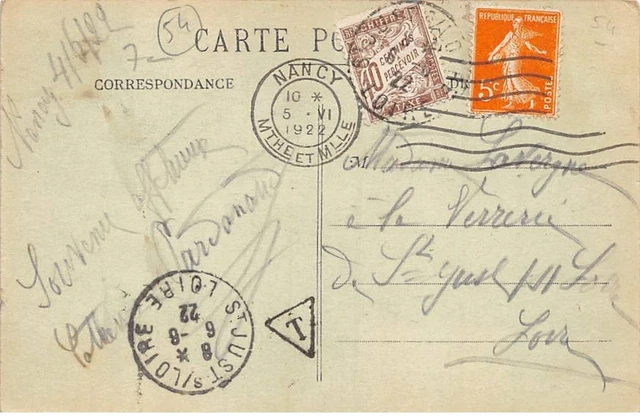 54
54
Nancy 4/6/22
7-
CARTE PO
CORRESPONDANCE
NANCY
10 *
5 · VI
1922
MTHE ET MLLE
CHIFFRE
40
CENTIMES
À PERCEVOIR
TAXE
REPUBLIQUE FRANÇAISE
5c
POSTES
M
Madame Lavergne
à la Verrerie
de St Just s/ Loire
Loire
Souvenir affectueux
ST JUST S/LOIRE LOIRE
*
8 -6
6
22
T